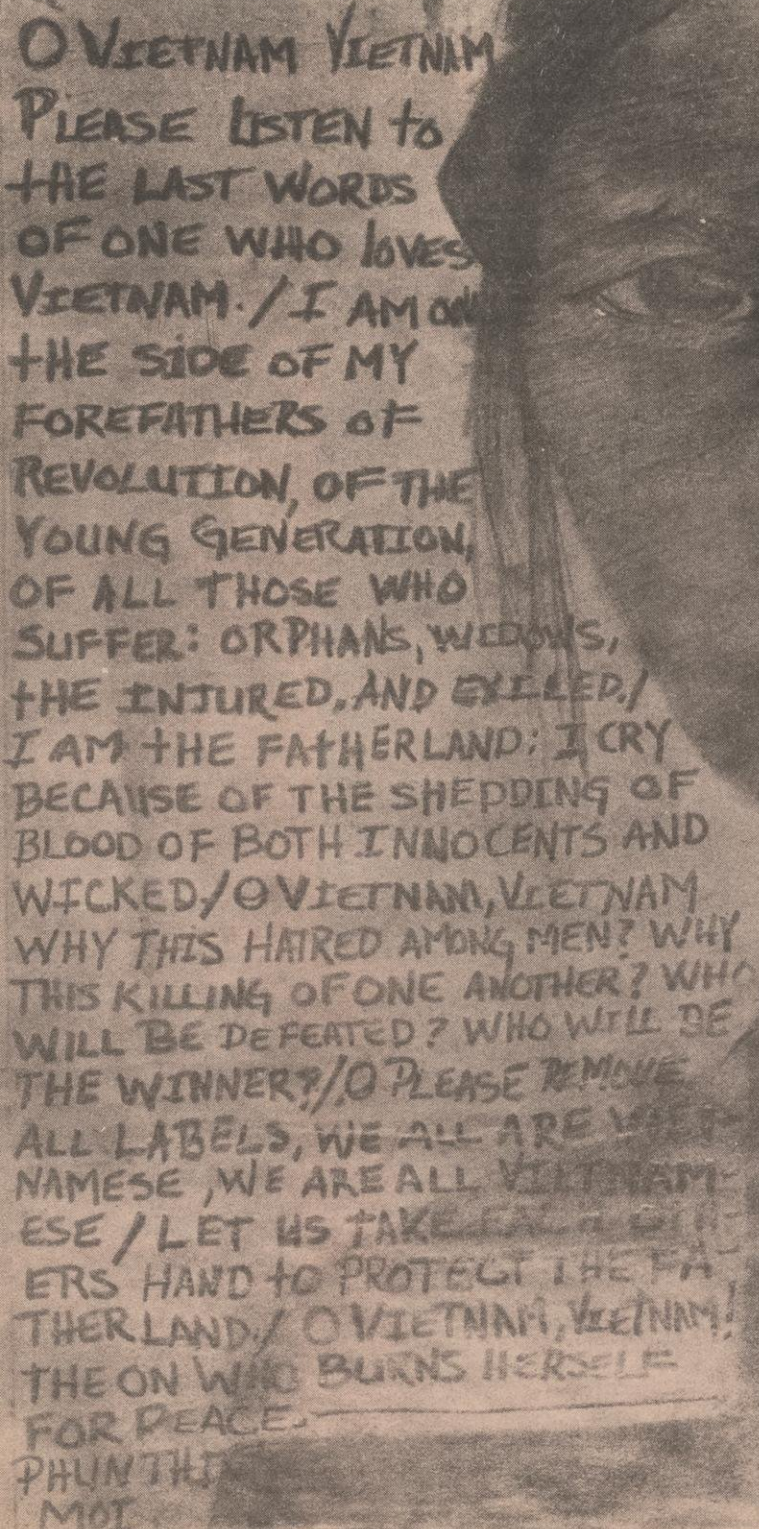 O VIETNAM VIETNAM
PLEASE LISTEN to
tHE LAST WORDS
OF ONE WHO lOVES
VIETNAM. / I AM ON
tHE SIDE OF MY
FOREFATHERS OF
REVOLUTION, OF THE
YOUNG GENERATION,
OF ALL THOSE WHO
SUFFER: ORPHANS, WIDOWS,
tHE INJURED, AND EXILED. /
I AM tHE FAtHERLAND: I CRY
BECAUSE OF THE SHEDDING OF
BLOOD OF BOTH INNOCENTS AND
WICKED. / O VIETNAM, VIETNAM
WHY THIS HATRED AMONG MEN? WHY
THIS KILLING OF ONE ANOTHER? WHO
WILL BE DEFEATED? WHO WILL BE
THE WINNER? / O PLEASE REMOVE
ALL LABELS, WE ALL ARE VIET-
NAMESE, WE ARE ALL VIETNAM-
ESE / LET US TAKE EACH OTH-
ERS HAND tO PROTECT THE FA-
THERLAND. / O VIETNAM, VIETNAM!
THE ON WHO BURNS HERSELF
FOR PEACE.
PHUN THI
MOI